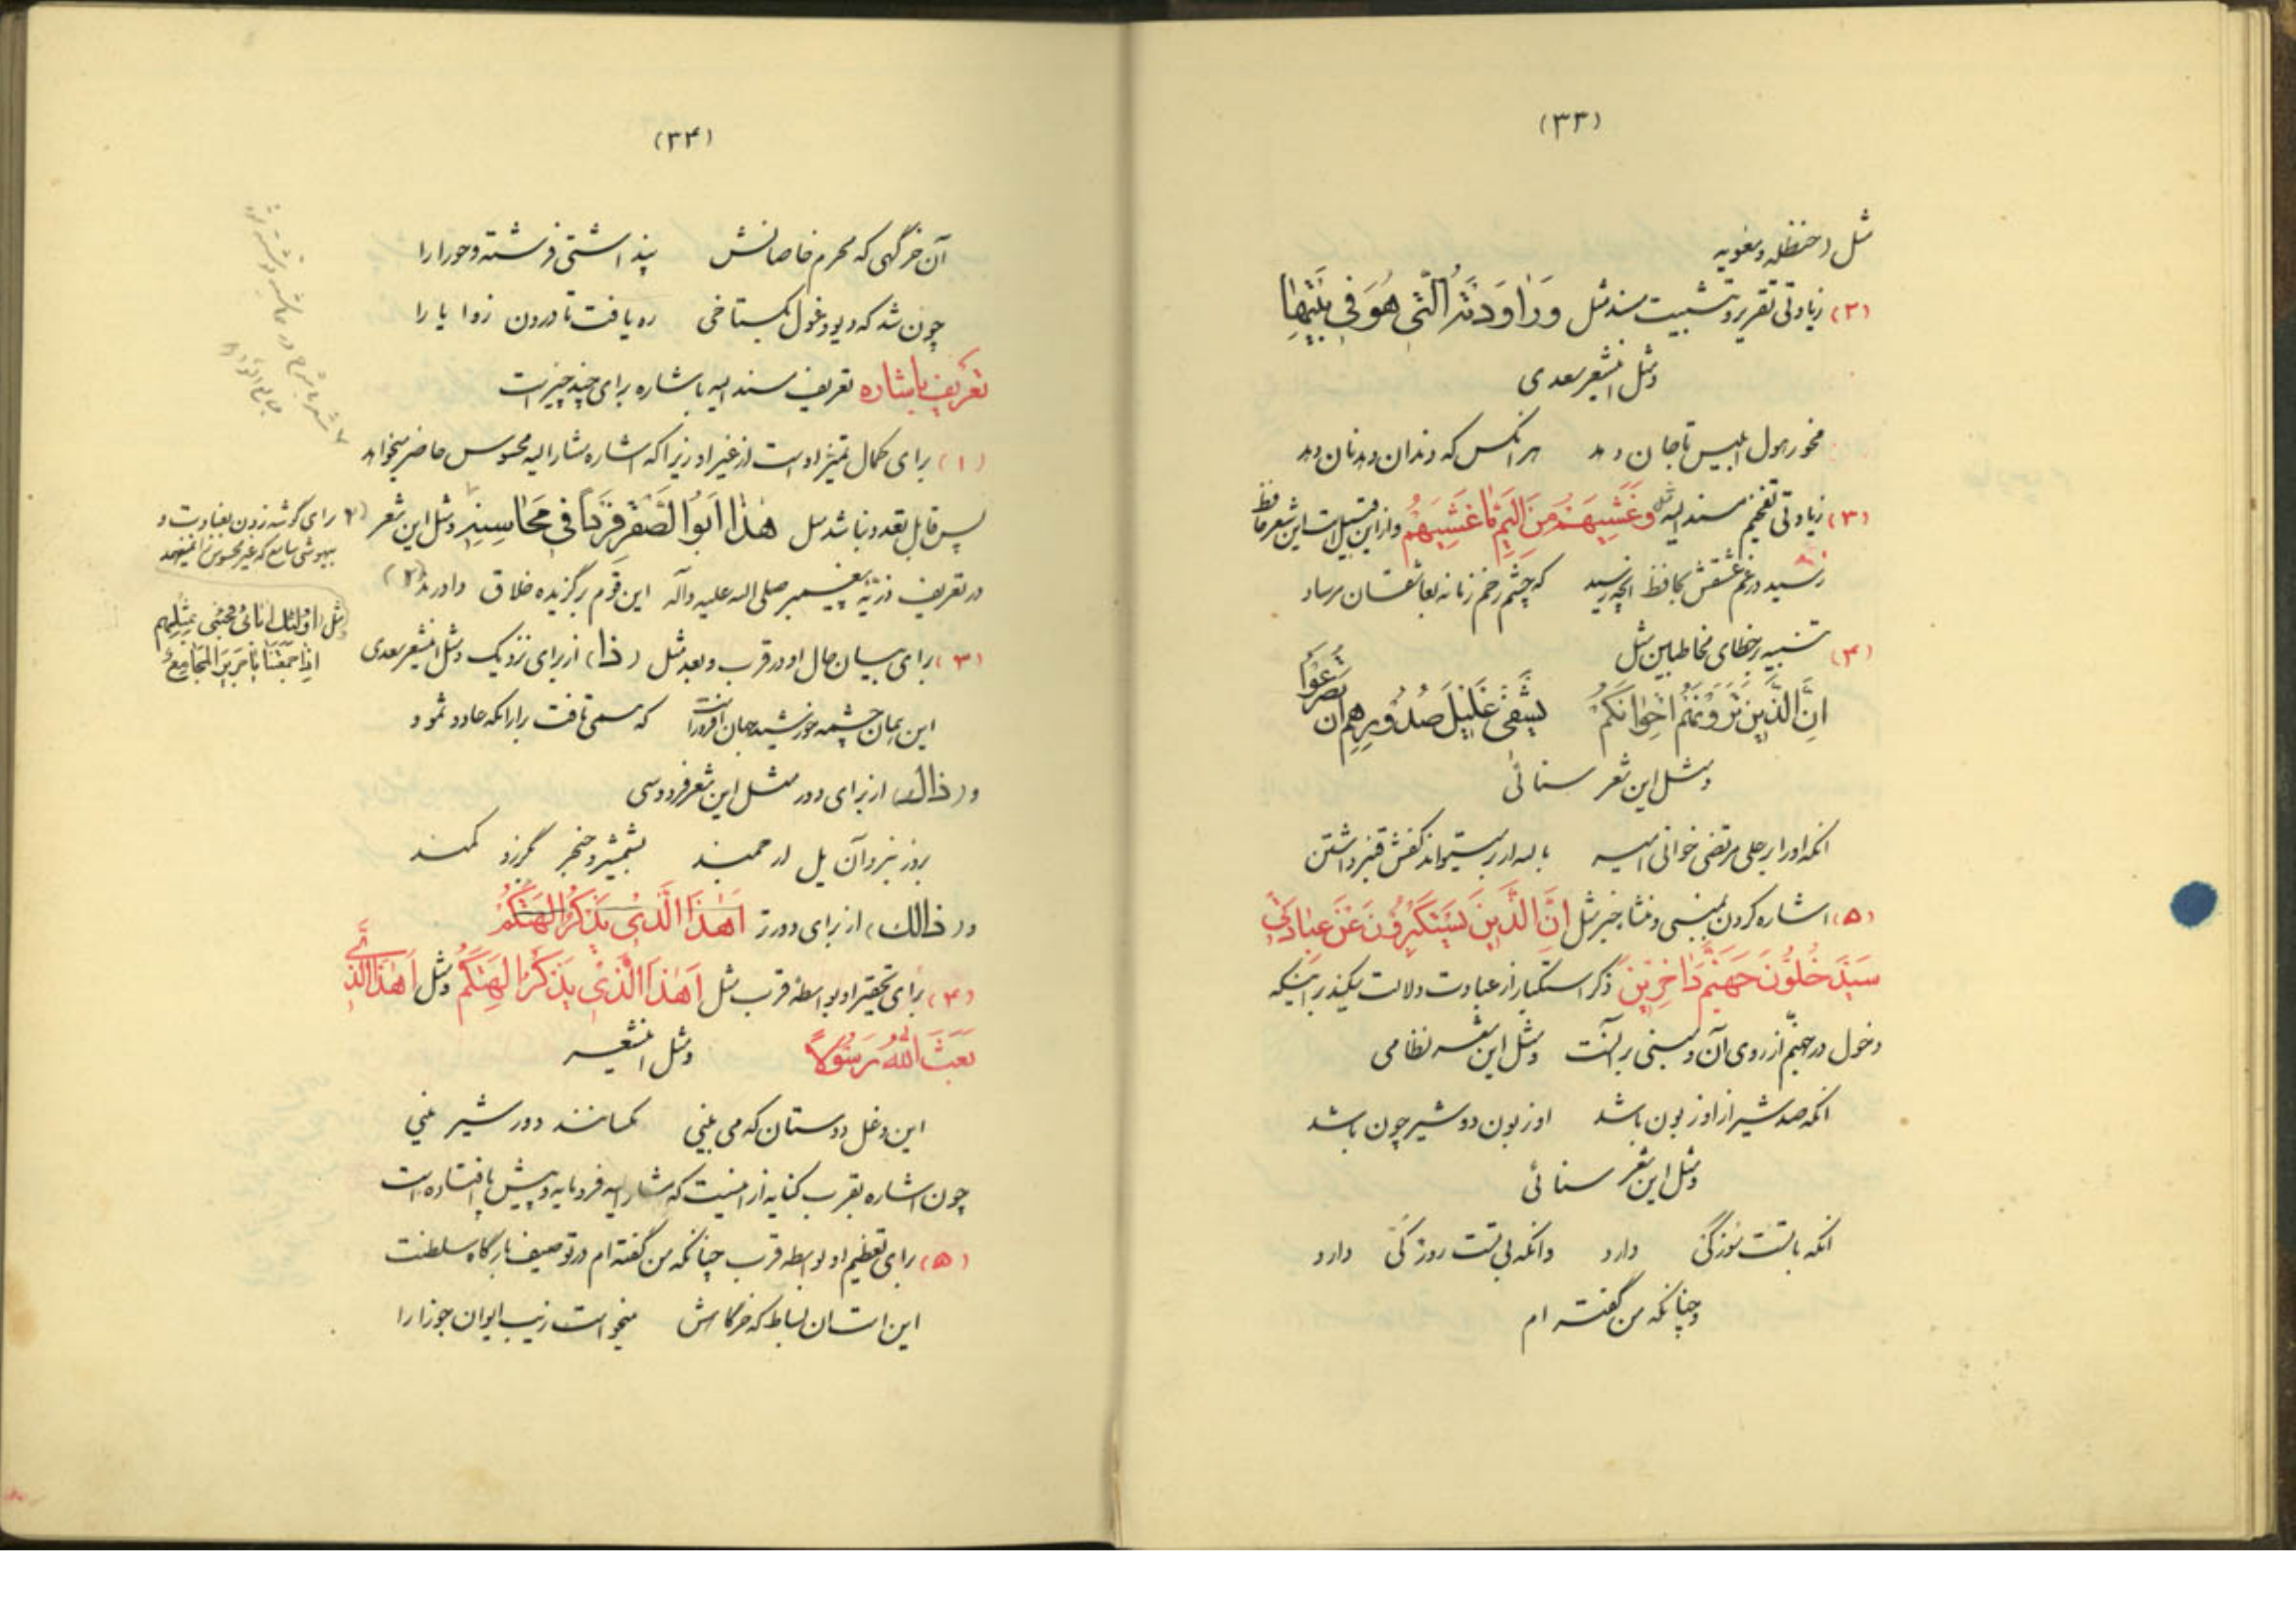 (۳۳)
مثل (حنظله و معویه
(۲) زیادتی تقریر و تثبیت مسند مثل وَرٰاوَدَتْهُ الَّتی هُوَ فی بَیْتِهٰا
و مثل اینشعر سعدی
مخور هول ابلیس تا جان دهد هر آنکس که دندان دهد نان دهد
(۳) زیادتی تفخیم مسندالیه مثل وَ غَشِیَهُمْ مِنَ الْیَمِّ مٰا غَشِیَهُمْ و از این قبیل است این شعر حافظ
رسید در غم عشقش بحافظ آنچه رسید که چشم زخم زمانه بعاشقان مرساد
(۴) تنبیه بر خطای مخاطبین مثل
اِنَّ الَّذینَ تَرَوْنَهُمْ اِخْوٰانَکُمْ یَشْفی غَلیلَ صُدُورِهِمْ اَنْ تُصْرَعُوا
و مثل این شعر سنائی
آنکه او را بر علی مرتضی خوانی امیر بالله ار بر میتواند کفش قنبر داشتن
(۵) اشاره کردن بمبنی و منشاء خبر مثل اِنَّ الَّذینَ یَسْتَکْبِرُونَ عَنْ عِبٰادَتی
سَیَدْخُلُونَ جَهَنَّمَ دٰاخِرینَ ذکر استکبار از عبادت دلالت میکند بر اینکه
دخول در جهنم از روی آن و مبنی بر آنست و مثل این شعر نظامی
آنکه صد شیر از او زبون باشد او زبون دو شیر چون باشد
و مثل این شعر سنائی
آنکه با تست سوزکی دارد وانکه بی تست روزکی دارد
و چنانکه من گفته ام
(۳۴)
آن خرگهی که محرم خاصانش پنداشتی فرشته و حورا را
چون شد که دیو و غول بگستاخی ره یافت تا درون زوایا را
تعریف باشاره تعریف مسندالیه باشاره برای چند چیز است
(۱) برای کمال تمیز او است از غیر او زیرا که اشاره مشارالیه محسوس حاضر میخواهد
پس قابل تعدد نباشد مثل هٰذٰا اَبُو الصَّقْرِ فَرْداً فی مَحٰاسِنِهِ و مثل این شعر
در تعریف ذریّه پیغمبر صلی الله علیه وآله این قوم برگزیده خلاق داورند (۲)
(۲) برای گوشه زدن بغباوت و
بیهوشی سامع که غیر محسوس را نمیفهمد
مثل اُولٰئِکَ اٰبٰائی فَجِئْنی بِمِثْلِهِمْ
اِذٰا جَمَعَتْنٰا یٰا جَریرُ الْمَجٰامِعُ
(۳) برای بیان حال او در قرب و بعد مثل (ذا) از برای نزدیک و مثل اینشعر سعدی
این همان چشمه خورشید جهان افروز است که همی تافت بر آرامگه عاد و ثمود
و (ذاک) از برای دور مثل این شعر فردوسی
بروز نبرد آن یل ارجمند بشمشیر و خنجر بگرز و کمند
و (ذالک) از برای دورتر اَهٰذَا الَّذی یَذْکُرُ اٰلِهَتَکُمْ
(۴) برای تحقیر او بواسطه قرب مثل اَهٰذَا الَّذی یَذْکُرُ اٰلِهَتَکُمْ و مثل اَهٰذَا الَّذی
بَعَثَ اللّٰهُ رَسُولاً و مثل اینشعر
این دغل دوستان که می بینی مگسانند دور شیرینی
چون اشاره بقرب کنایه از اینست که مشارالیه فرومایه و پیش پا افتاده است
(۵) برای تعظیم او بواسطه قرب چنانکه من گفته ام در توصیف بارگاه سلطنت
این استان بساط که خرگاهش میخواست زیب ایوان جوزا را